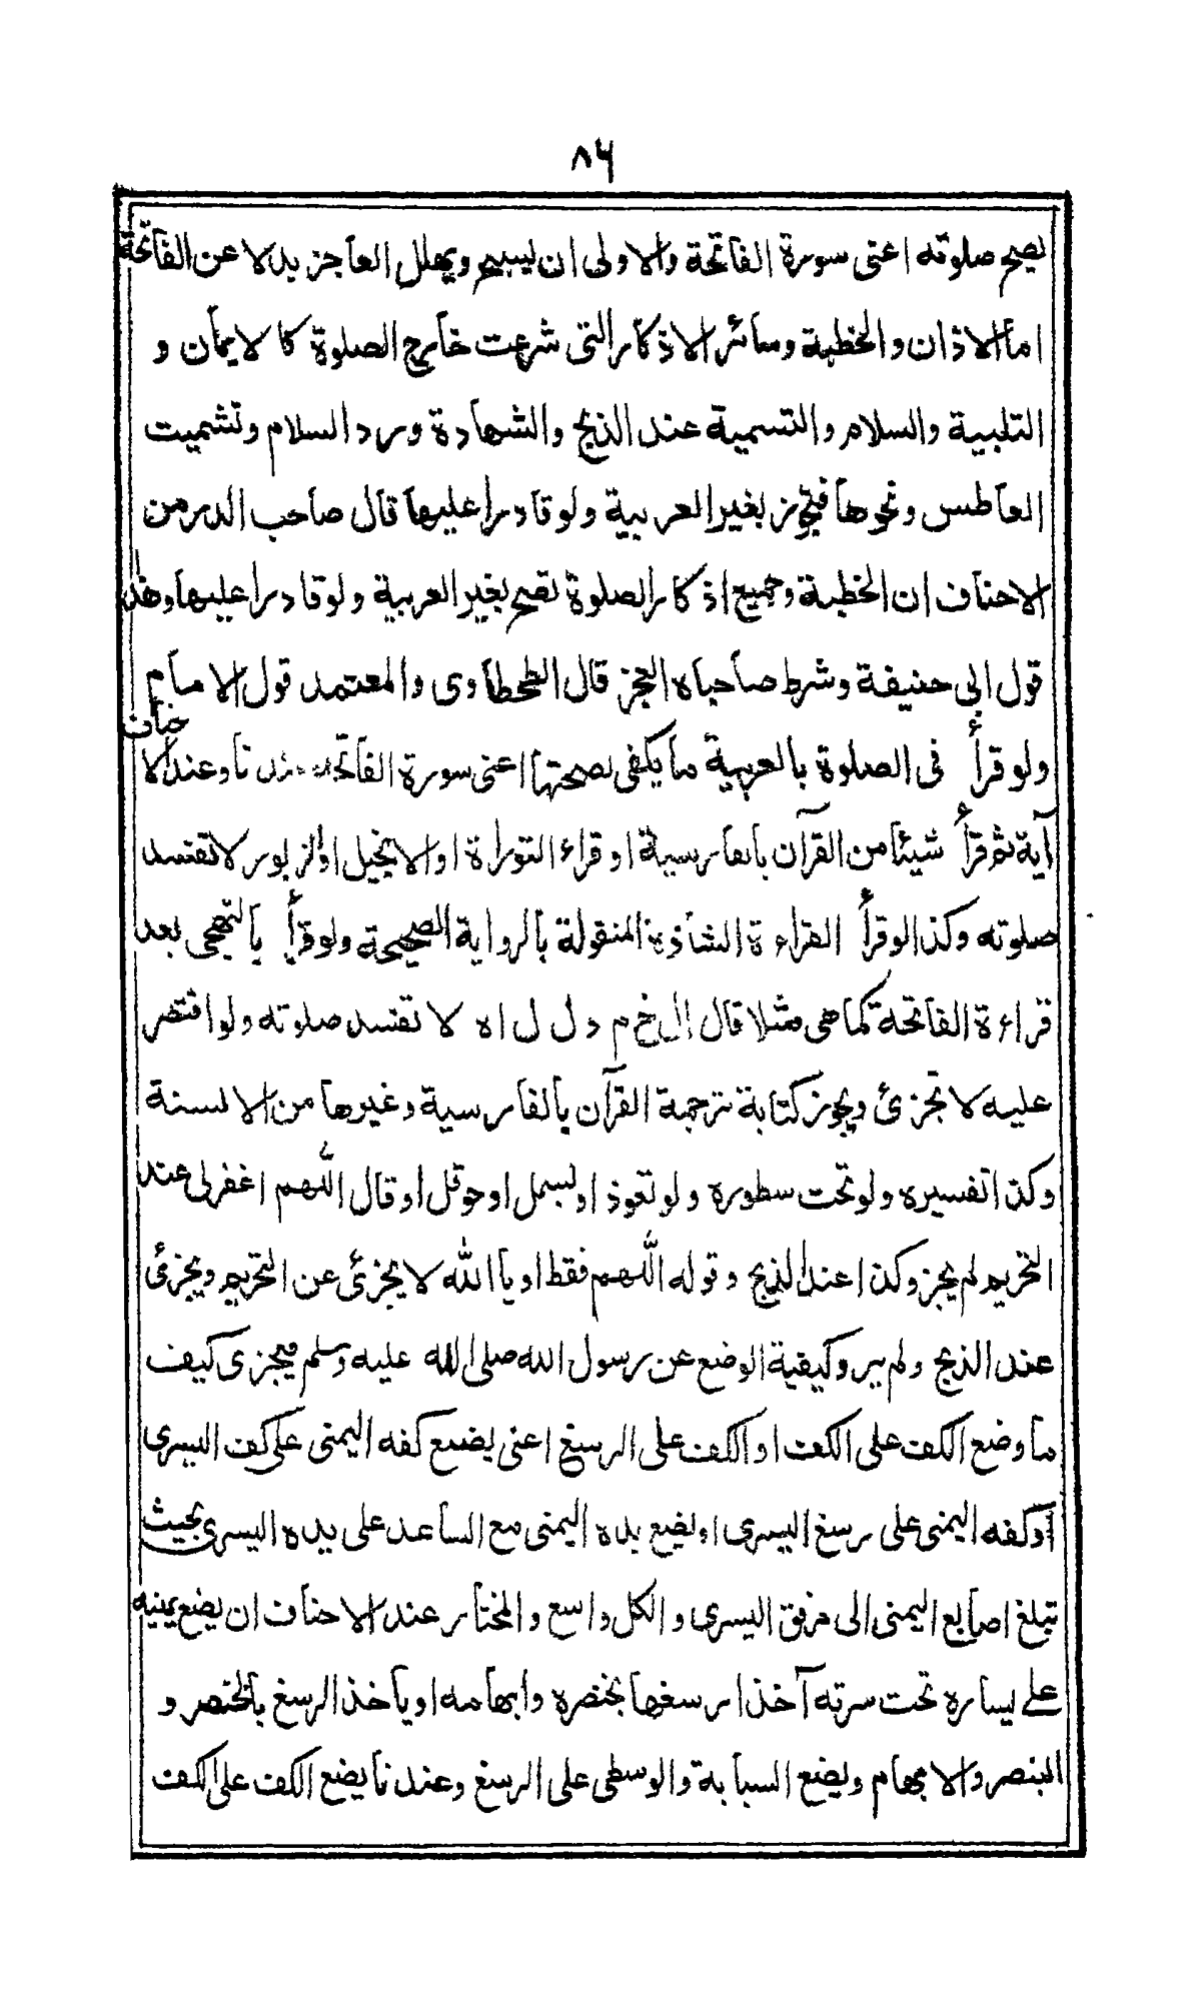 ٨٦
يصح صلوته اعنى سورة الفاتحة والاولى ان يسبح ويهلل العاجز بدلا عن الفاتحة
اما الاذان والخطبة وسائر الاذكار التى شرعت خارج الصلوة كالايمان و
التلبية والسلام والتسمية عند الذبح والشهادة ورد السلام وتشميت
العاطس ونحوها فيجوز بغير العربية ولو قادرا عليها قال صاحب الدر من
الاحناف ان الخطبة وجميع اذكار الصلوة تصح بغير العربية ولو قادرا عليها وهذا
قول ابى حنيفة وشرط صاحباه العجز قال الطحطاوى والمعتمد قول الامام
ولو قرأ فى الصلوة بالعربية ما يكفى لصحتها اعنى سورة الفاتحة عندنا وعند الاحناف
آية ثم قرأ شيئا من القرآن بالفارسية او قراء التوراة او الانجيل او الزبور لا تفسد
صلوته وكذا لو قرأ القراءة الشاذة المنقولة بالرواية الصحيحة ولو قرأ بالتهجى بعد
قراءة الفاتحة كما هى مثلا قال ال خ م د ل ل ا ه لا تفسد صلوته ولو اقتصر
عليه لا تجزئ ويجوز كتابة ترجمة القرآن بالفارسية وغيرها من الالسنة
وكذا تفسيره ولو تحت سطوره ولو تعوذ او بسمل او حوقل او قال اللهم اغفر لى عند
التحريم لم يجز وكذا عند الذبح وقوله اللهم فقط او يا الله لا يجزئ عن التحريم ويجزئ
عند الذبح ولم ير وكيفية الوضع عن رسول الله صلى الله عليه وسلم فيجزى كيف
ما وضع الكف على الكف او الكف على الرسغ اعنى يضع كفه اليمنى على كف اليسرى
او كفه اليمنى على رسغ اليسرى او يضع يده اليمنى مع الساعد على يده اليسرى بحيث
تبلغ اصابع اليمنى الى مرفق اليسرى والكل واسع والمختار عند الاحناف ان يضع يمينه
على يساره تحت سرته آخذا رسغها بخنصره وابهامه او ياخذ الرسغ بالخنصر و
البنصر والابهام ويضع السبابة والوسطى على الرسغ وعندنا يضع الكف على الكف